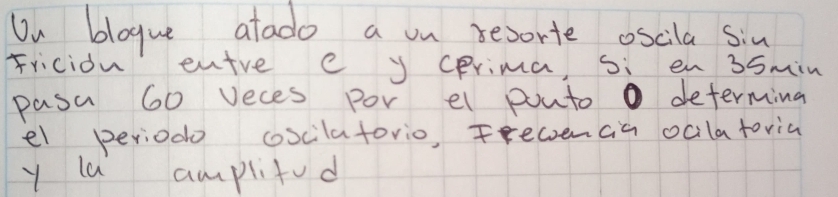 Un bloque atado a un resorte oscila sin
Fricion entre c y cprima, Si en 35min
pasa 60 veces por el punto O determina
el periodo oscilatorio, Frecuencia ocilatoria
y la amplitud